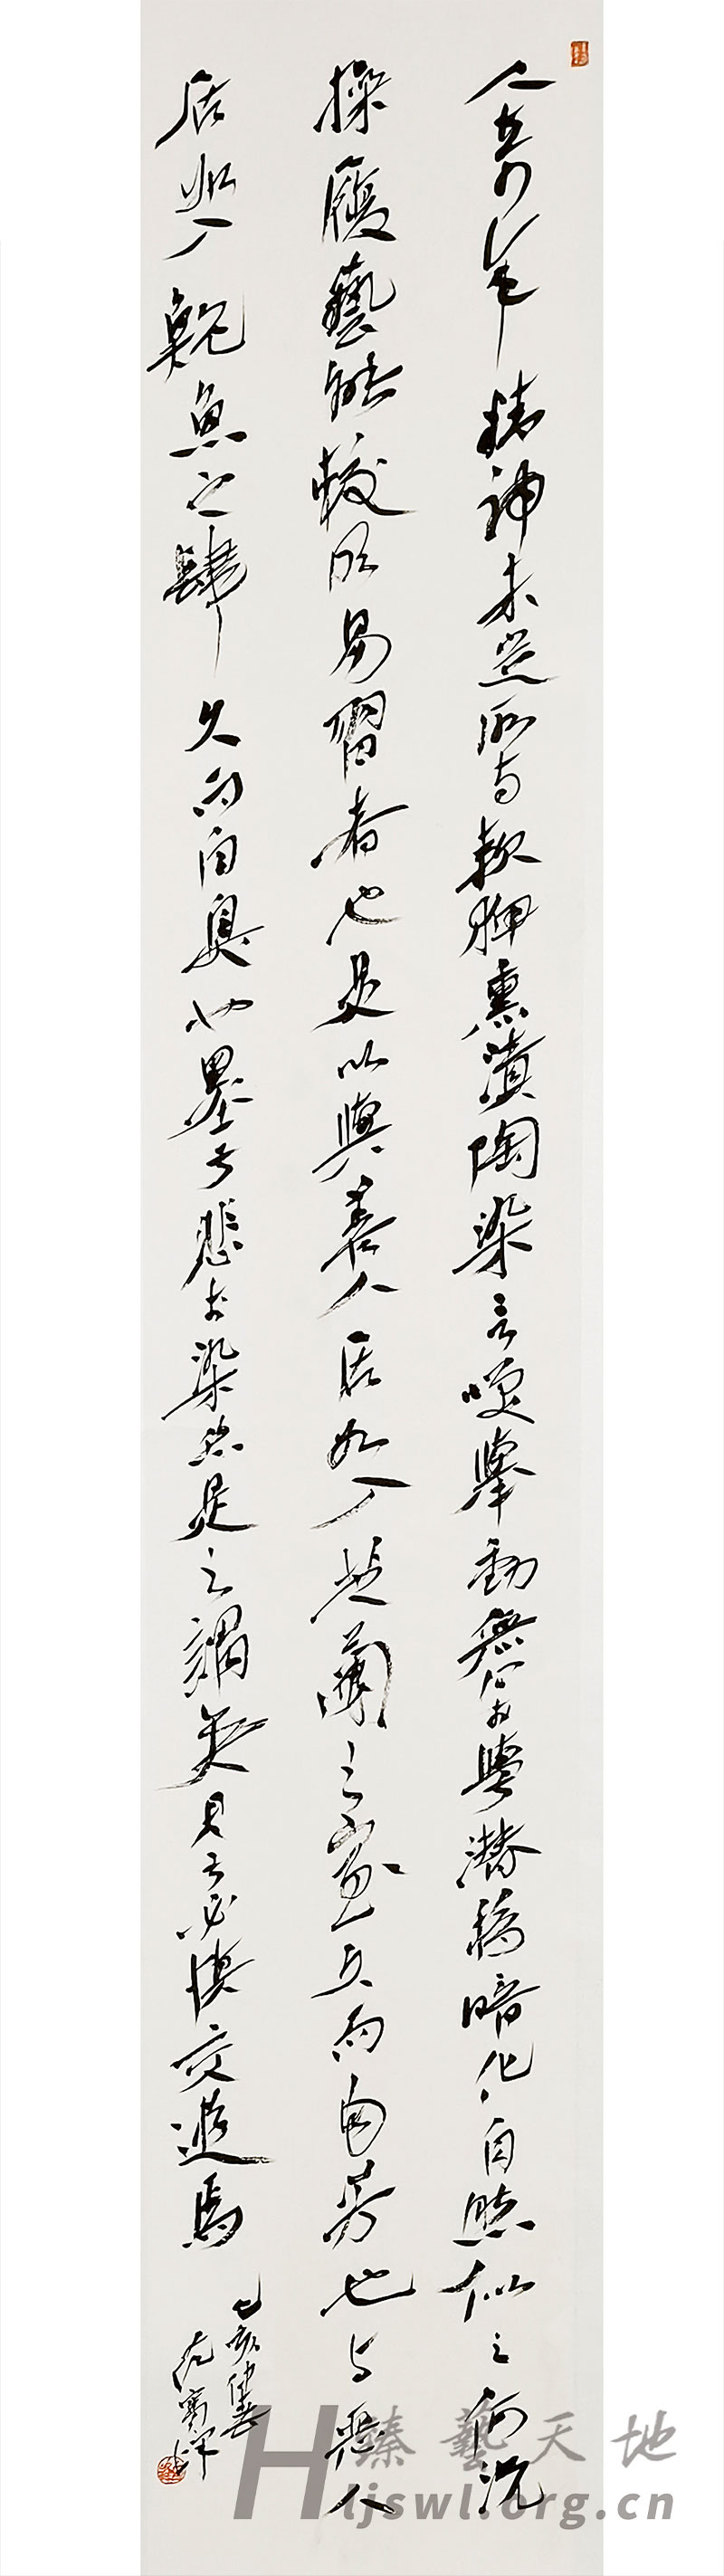 人在少年精神未定所与款狎熏漬陶染言咲舉動無心於學潛移暗化自然似之何况
操履藝能較明易習者也是以與善人居如入芝蘭之室久而自芳也与惡人
居如入鮑魚之肆久而自臭也墨子悲於染絲是之謂矣君子必慎交遊焉
己亥
臻藝天地
Hljswl.org.cn